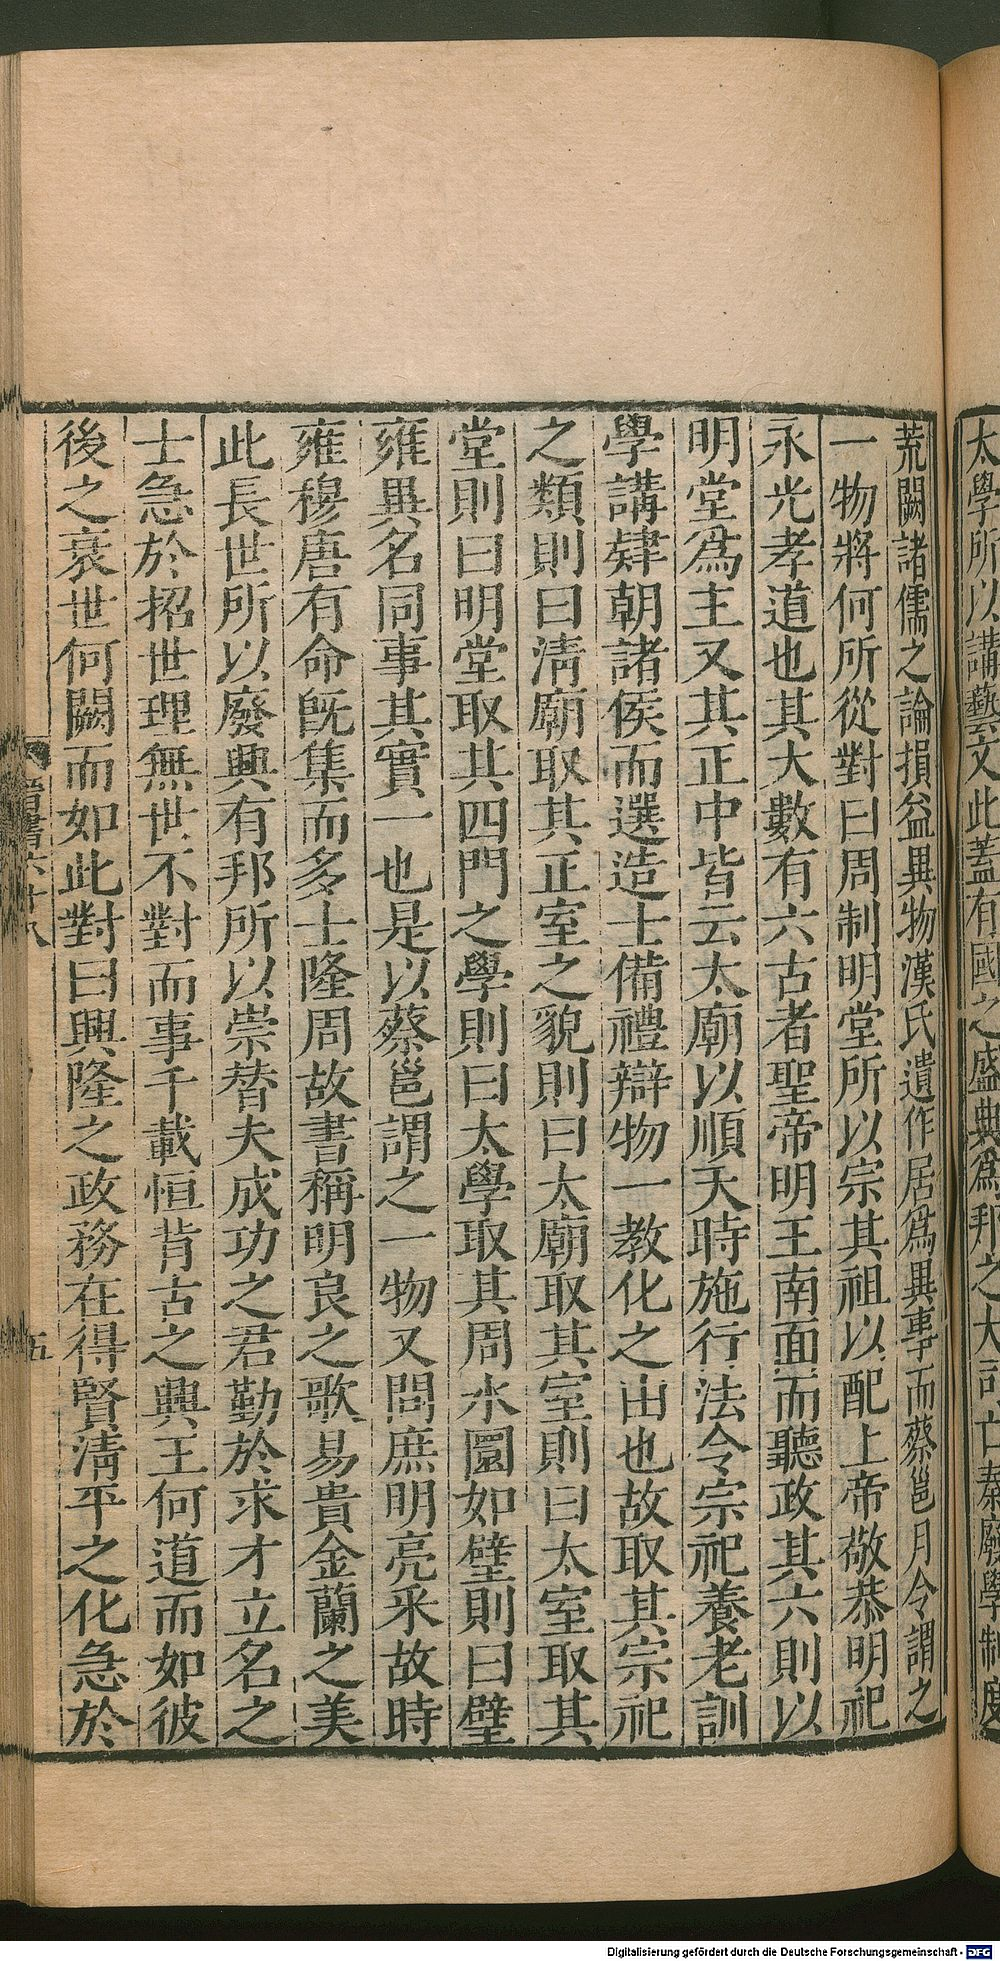 太學所以講藝文此蓋有國之盛典爲邦之大司亡秦廢學制度
荒闕諸儒之論損益異物漢氏遺作居爲異事而蔡邕月令謂之
一物將何所從對曰周制明堂所以宗其祖以配上帝敬恭明祀
永光孝道也其大數有六古者聖帝明王南面而聽政其六則以
明堂爲主又其正中皆云太廟以順天時施行法令宗祀養老訓
學講肄朝諸侯而選造士備禮辯物一教化之由也故取其宗祀
之類則曰淸廟取其正室之貌則曰太廟取其室則曰太室取其
堂則曰明堂取其四門之學則曰太學取其周水圜如璧則曰璧
雍異名同事其實一也是以蔡邕謂之一物又問庶明亮采故時
雍穆唐有命旣集而多士隆周故書稱明良之歌易貴金蘭之美
此長世所以廢興有邦所以崇替夫成功之君勤於求才立名之
士急於招世理無世不對而事千載恒背古之興王何道而如彼
後之衰世何闕而如此對曰興隆之政務在得賢淸平之化急於
晉書六十八
五
Digitalisierung gefördert durch die Deutsche Forschungsgemeinschaft - DFG